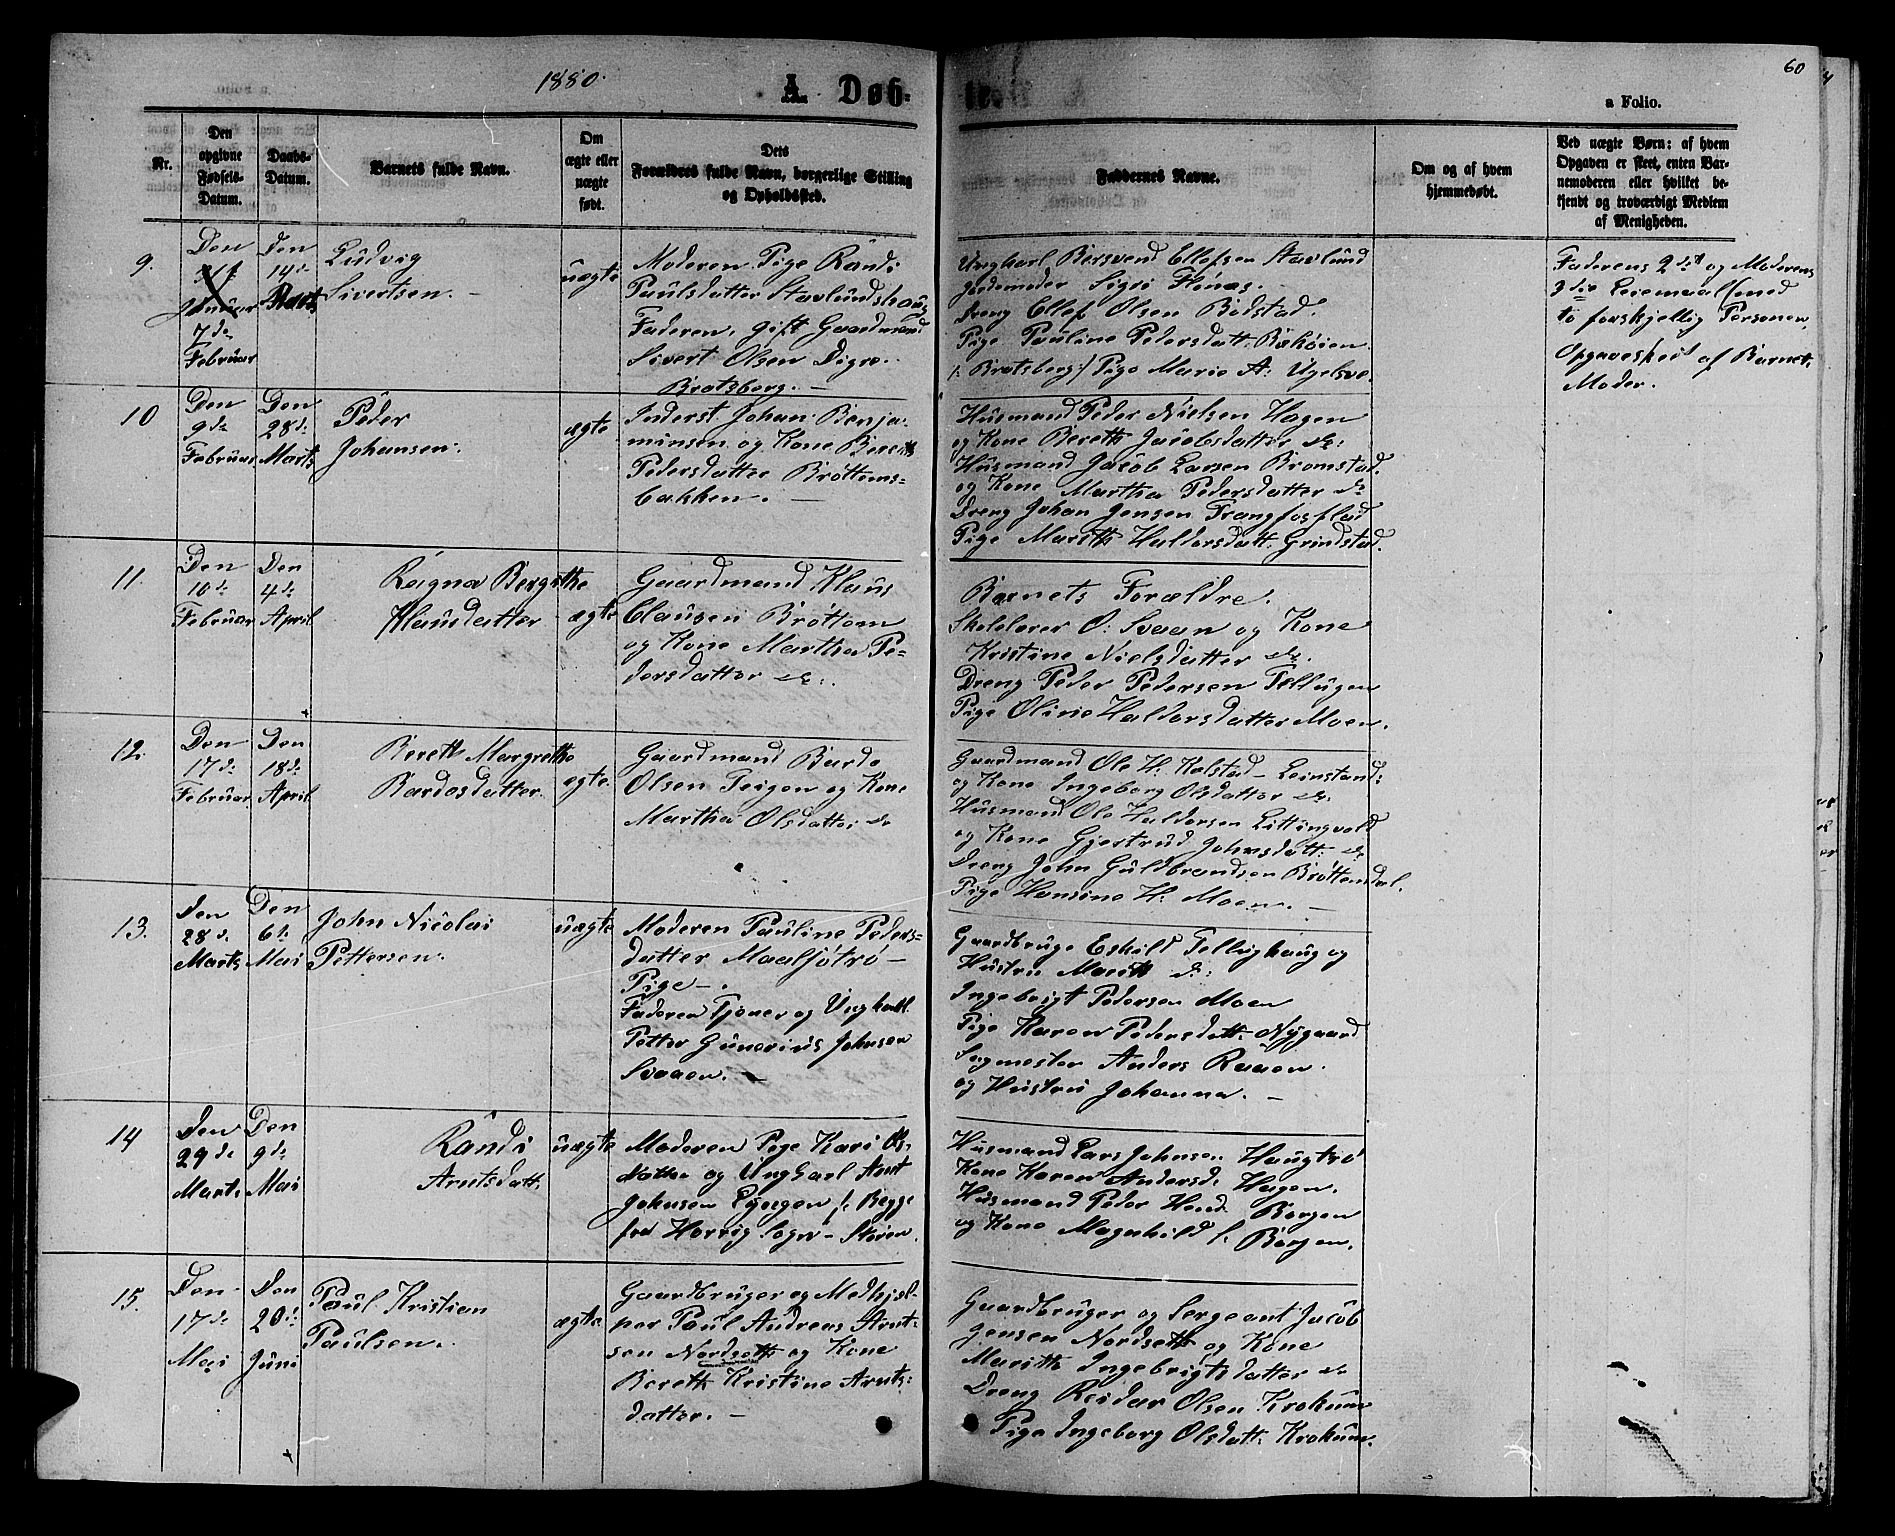 1880.
A. Døb-
te.
60
a Folio.
Nr.
Den
opgivne
Fødsels-
Datum.
Daabs-
Datum.
Barnets fulde Navn.
Om
ægte eller
uægte
født.
Dets
Forældres fulde Navn, borgerlige Stilling
og Opholdssted.
Faddernes Navne.
Om og af hvem
hjemmedøbt.
Ved uægte Børn: af hvem
Opgaven er skeet, enten Bar-
nemoderen eller hvilket be-
kjendt og troværdigt Medlem
af Menigheden.
9.
Den
7de
Februar
Den
14de
Marts
Ludvig
Sivertsen. -
uægte
Moderen Pige Randi
Paulsdatter Stavlundshaug
Faderen, gift Gaardmand
Sivert Olsen Digre.
Bratsberg. -
Ungkarl Bersvend Ellefsen Stavlund
Jordemoder Sigri
Dreng Ellef Olsen Bodstad.
Pige Pauline Pedersdatt.
/: Bratsberg:/ Pige Marie A:
Faderens 2det og Moderens
3die Leiermaal (med
to forskjellig Personer.
Opgaves skeet af Barnets
Moder.
10
Den
9de
Februar
Den
28de
Marts
Peder
Johansen.
ægte
Inderst Johan Benja-
minsen og Kone Bereth
Pedersdatter Brøttems-
bakken. -
Husmand Peder Nielsen Hagen
og Kone Bereth Jacobsdatter do:
Husmand Jacob Larsen Bromstad.
og Kone Martha Pedersdatter do
Dreng Johan Jensen Trangfosflad
Pige Marith Haldorsdatt. Grindstad.
11.
Den
10de
Februar
Den
4de
April
Ragna Bergithe
Klausdatter
ægte
Gaardmand Klaus
Clausen Brøttem
og Kone Martha Pe-
dersdatter do.
Barnets Forældre.
Skolelærer O: Svaan og Kone
Kristine Nielsdatter do.
Dreng Peder Pedersen Tellugen
Pige Oline Haldorsdatter Moen.
12.
Den
17de
Februar
Den
18de
April
Bereth Margrethe
Bardosdatter.
ægte.
Gaardmand Bardo
Olsen Teigen og Kone
Martha Olsdatter do
Gaardmand Ole H. Kolstad - Leinstrand:
og Kone Ingeborg Olsdatter do.
Husmand Ole Haldorsen Littingvold
og Kone Gjertrud Johnsdatt: do
Dreng John Guldbrandsen Brøttemsdal.
Pige Hansine H. Moen. -
13.
Den
28d.
Marts
Den
6te
Mai
John Nicolai
Pettersen.
uægte
Moderen Pauline Peders-
datter Maalsjøtrø -
Pige -.
Faderen Tjener og Ungkarl
Petter Gunerius Johnsen
Svaaen. -
Gaardbruge Eskild Tellughaug og
Hustru Marith do:
Ingebrigt Pedersen Moen
Pige Karen Pedersdatt. Nygaard
Sagmester Anders Raaen.
og Hustru Johanna. -
14
Den
29de
Marts
Den
9de
Mai
Randi
Arntsdatt.
uægte
Moderen Pige Kari Ols-
datter og Ungkarl Arnt
Johnsen Lyngen /: Begge
fra Horrig Sogn - Støren.
Husmand Lars Johnsen Haugtrø
Kone Karen Andersd. Hagen.
Husmand Peder Borgen
og Kone Magnhild L. Borgen.
15.
Den
17de
Mai
Den
20de
Juni
Paul Kristian
Paulsen.
ægte
Gaardbruger og Medhjæl-
per Paul Andreas Arnt-
sen Nordseth og Kone
Bereth Kristine Arnts-
datter. -
Gaardbruger og Sergeant Jacob
Jensen Nordseth og Kone
Marith Ingebrigtsdatter do
Dreng Reidar Olsen Krokum
Pige Ingeborg Olsdatt. Krokum.